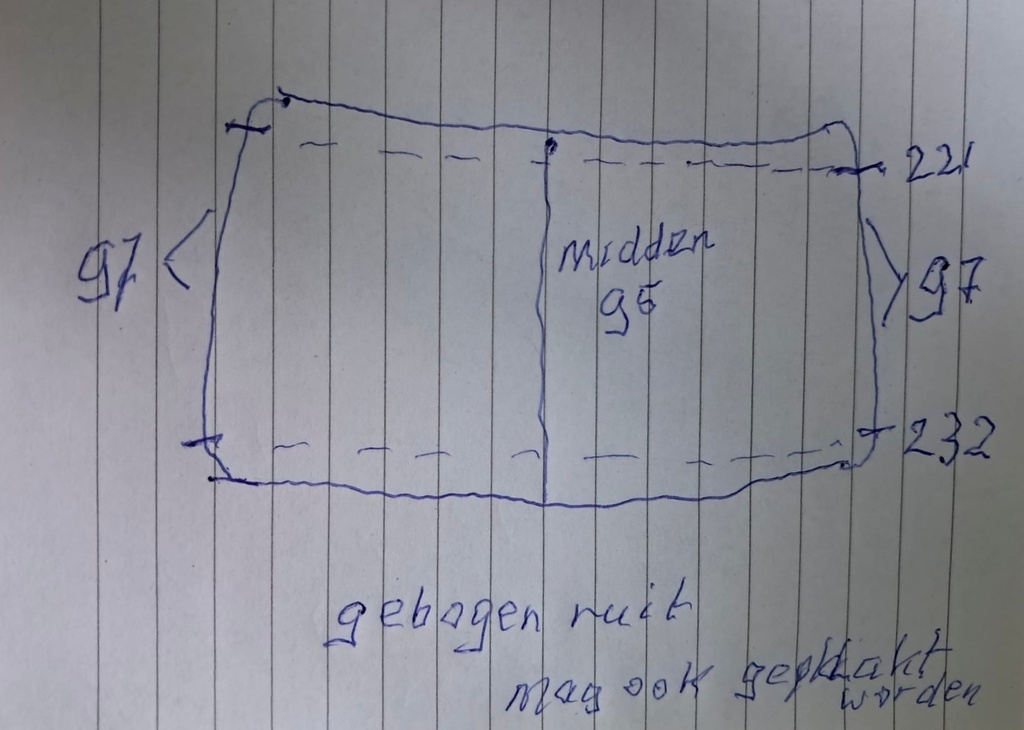 221
midden
95
97
97
232
gebogen ruit
mag ook geplakt
worden